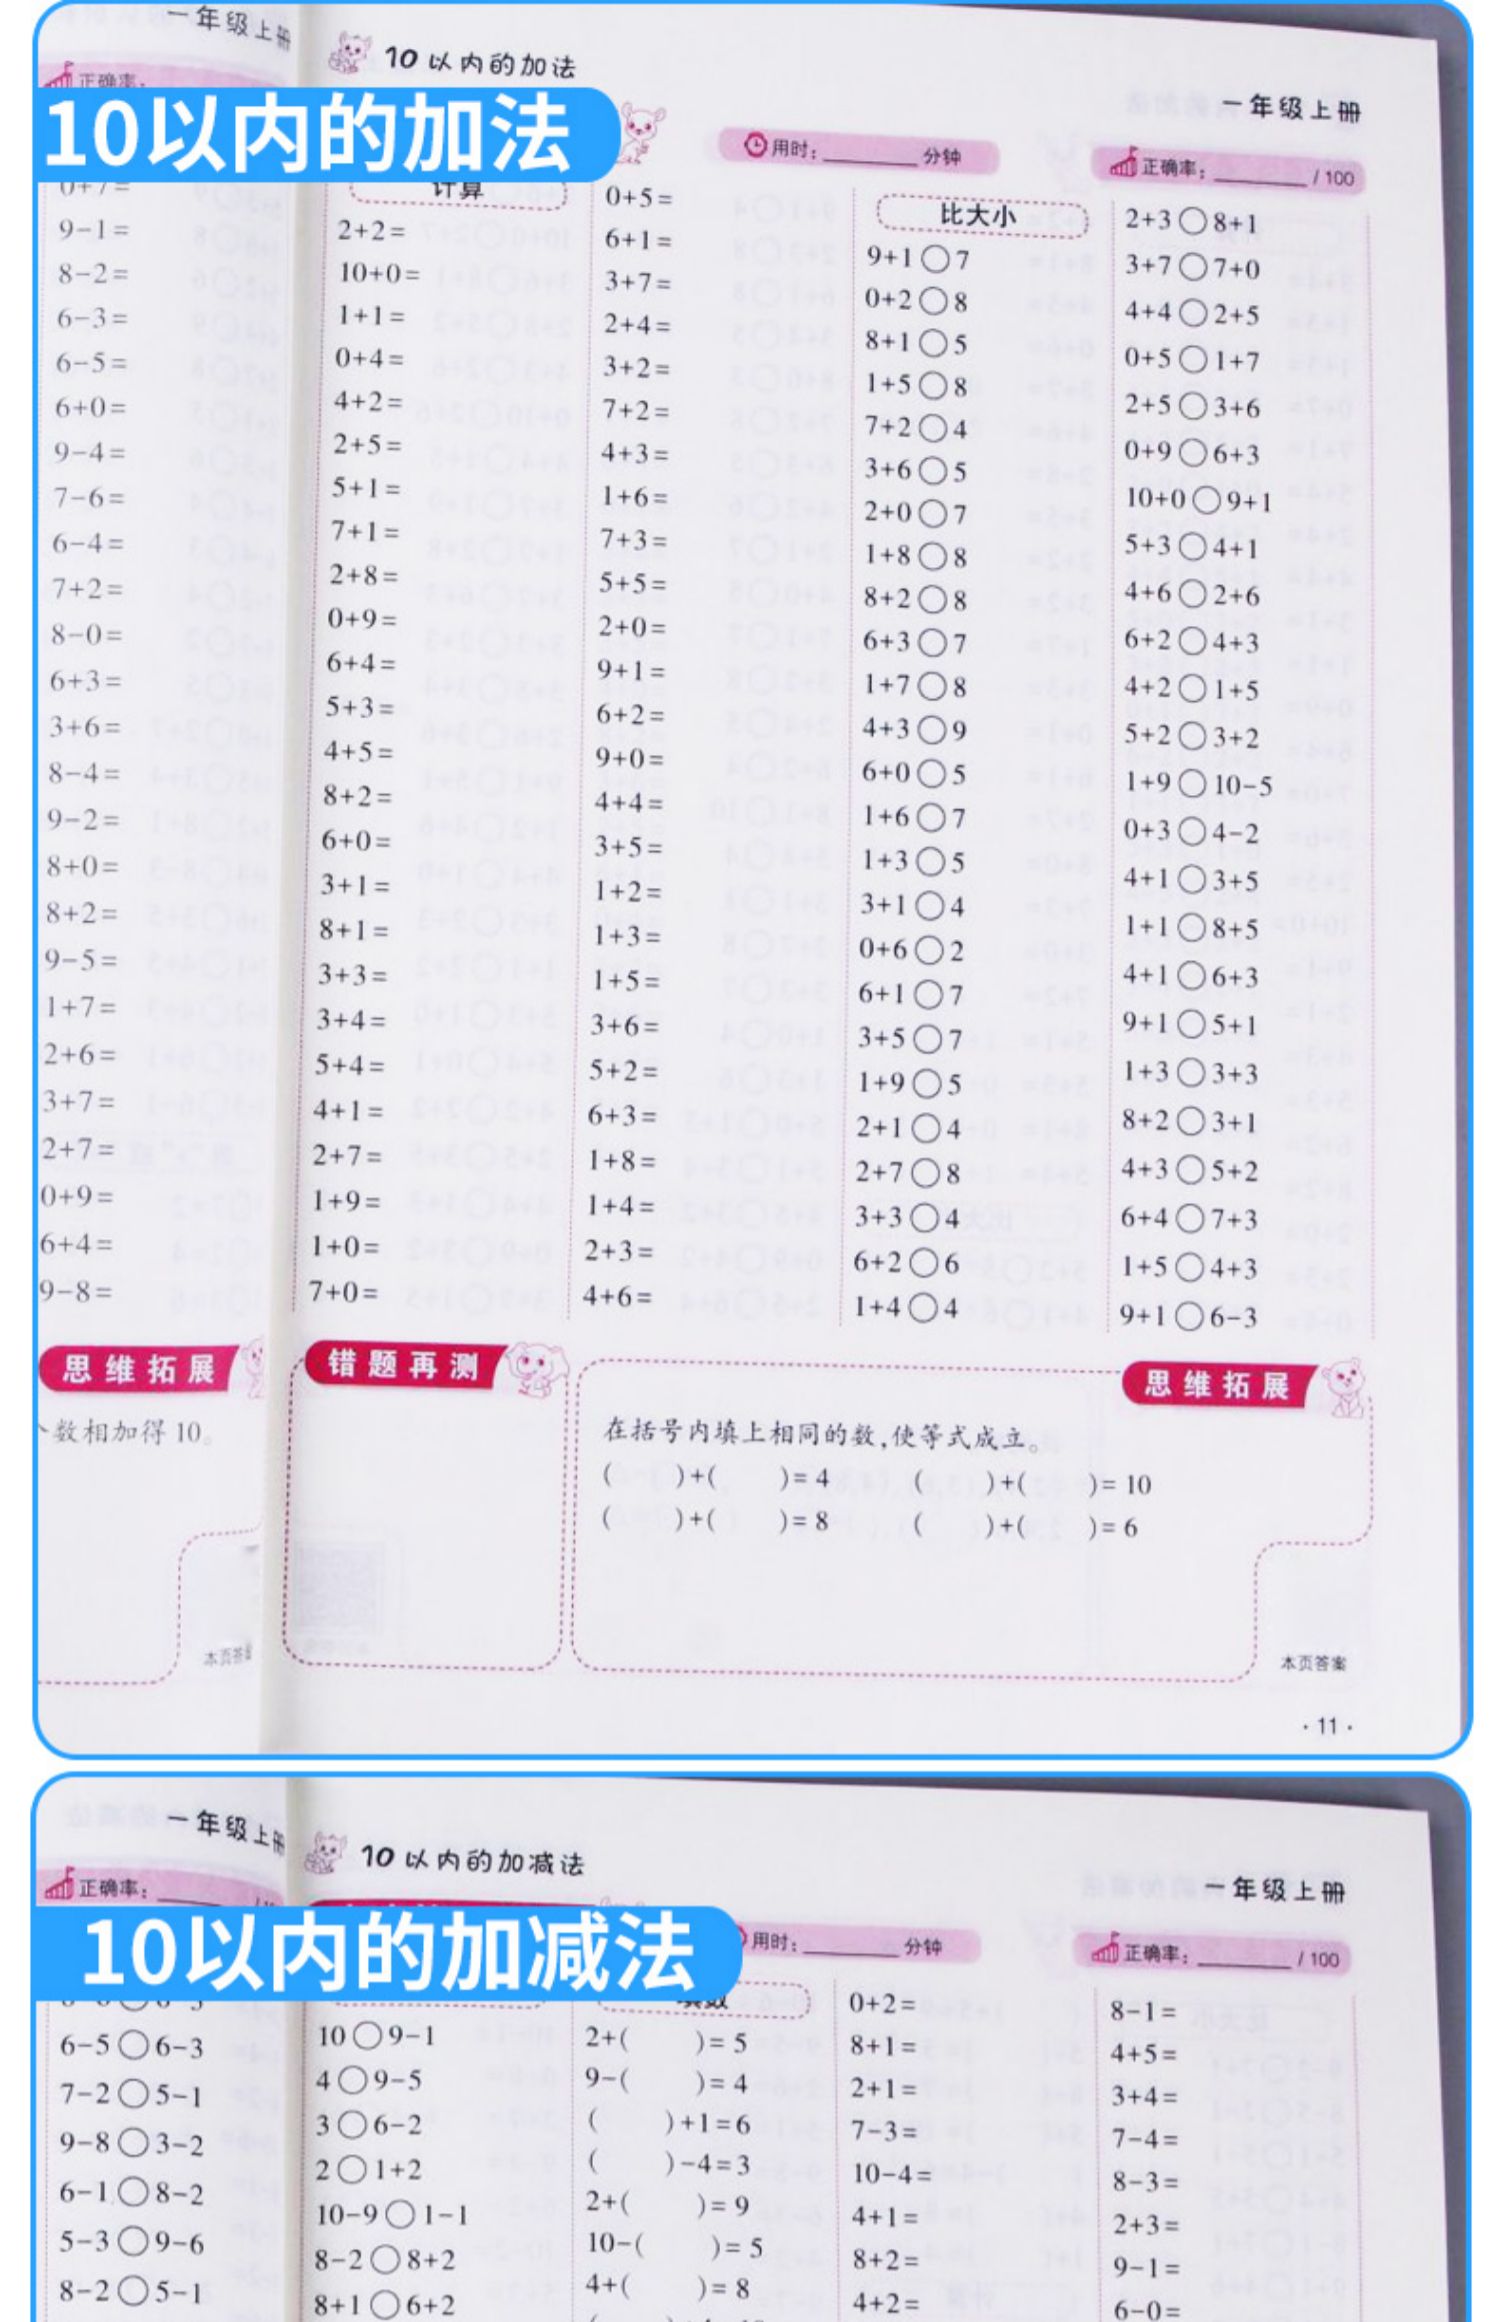 一年级上册
正确率：
10以内的加法
0+7=
9-1=
8-2=
6-3=
6-5=
6+0=
9-4=
7-6=
6-4=
7+2=
8-0=
6+3=
3+6=
8-4=
9-2=
8+0=
8+2=
9-5=
1+7=
2+6=
3+7=
2+7=
0+9=
6+4=
9-8=
思维拓展
数相加得10。
本页答案
10以内的加法
一年级上册
用时：______分钟
正确率：______/100
计算
2+2=
10+0=
1+1=
0+4=
4+2=
2+5=
5+1=
7+1=
2+8=
0+9=
6+4=
5+3=
4+5=
8+2=
6+0=
3+1=
8+1=
3+3=
3+4=
5+4=
4+1=
2+7=
1+9=
1+0=
7+0=
0+5=
6+1=
3+7=
2+4=
3+2=
7+2=
4+3=
1+6=
7+3=
5+5=
2+0=
9+1=
6+2=
9+0=
4+4=
3+5=
1+2=
1+3=
1+5=
3+6=
5+2=
6+3=
1+8=
1+4=
2+3=
4+6=
比大小
9+1○7
0+2○8
8+1○5
1+5○8
7+2○4
3+6○5
2+0○7
1+8○8
8+2○8
6+3○7
1+7○8
4+3○9
6+0○5
1+6○7
1+3○5
3+1○4
0+6○2
6+1○7
3+5○7
1+9○5
2+1○4
2+7○8
3+3○4
6+2○6
1+4○4
2+3○8+1
3+7○7+0
4+4○2+5
0+5○1+7
2+5○3+6
0+9○6+3
10+0○9+1
5+3○4+1
4+6○2+6
6+2○4+3
4+2○1+5
5+2○3+2
1+9○10-5
0+3○4-2
4+1○3+5
1+1○8+5
4+1○6+3
9+1○5+1
1+3○3+3
8+2○3+1
4+3○5+2
6+4○7+3
1+5○4+3
9+1○6-3
错题再测
思维拓展
在括号内填上相同的数,使等式成立。
(　　)+(　　)=4　　(　　)+(　　)=10
(　　)+(　　)=8　　(　　)+(　　)=6
本页答案
·11·
一年级上册
正确率：______
10以内的加减法
6-5○6-3
7-2○5-1
9-8○3-2
6-1○8-2
5-3○9-6
8-2○5-1
10以内的加减法
一年级上册
用时：______分钟
正确率：______/100
10○9-1
4○9-5
3○6-2
2○1+2
10-9○1-1
8-2○8+2
8+1○6+2
填数
2+(　　)=5
9-(　　)=4
(　　)+1=6
(　　)-4=3
2+(　　)=9
10-(　　)=5
4+(　　)=8
0+2=
8+1=
2+1=
7-3=
10-4=
4+1=
8+2=
4+2=
8-1=
4+5=
3+4=
7-4=
8-3=
2+3=
9-1=
6-0=